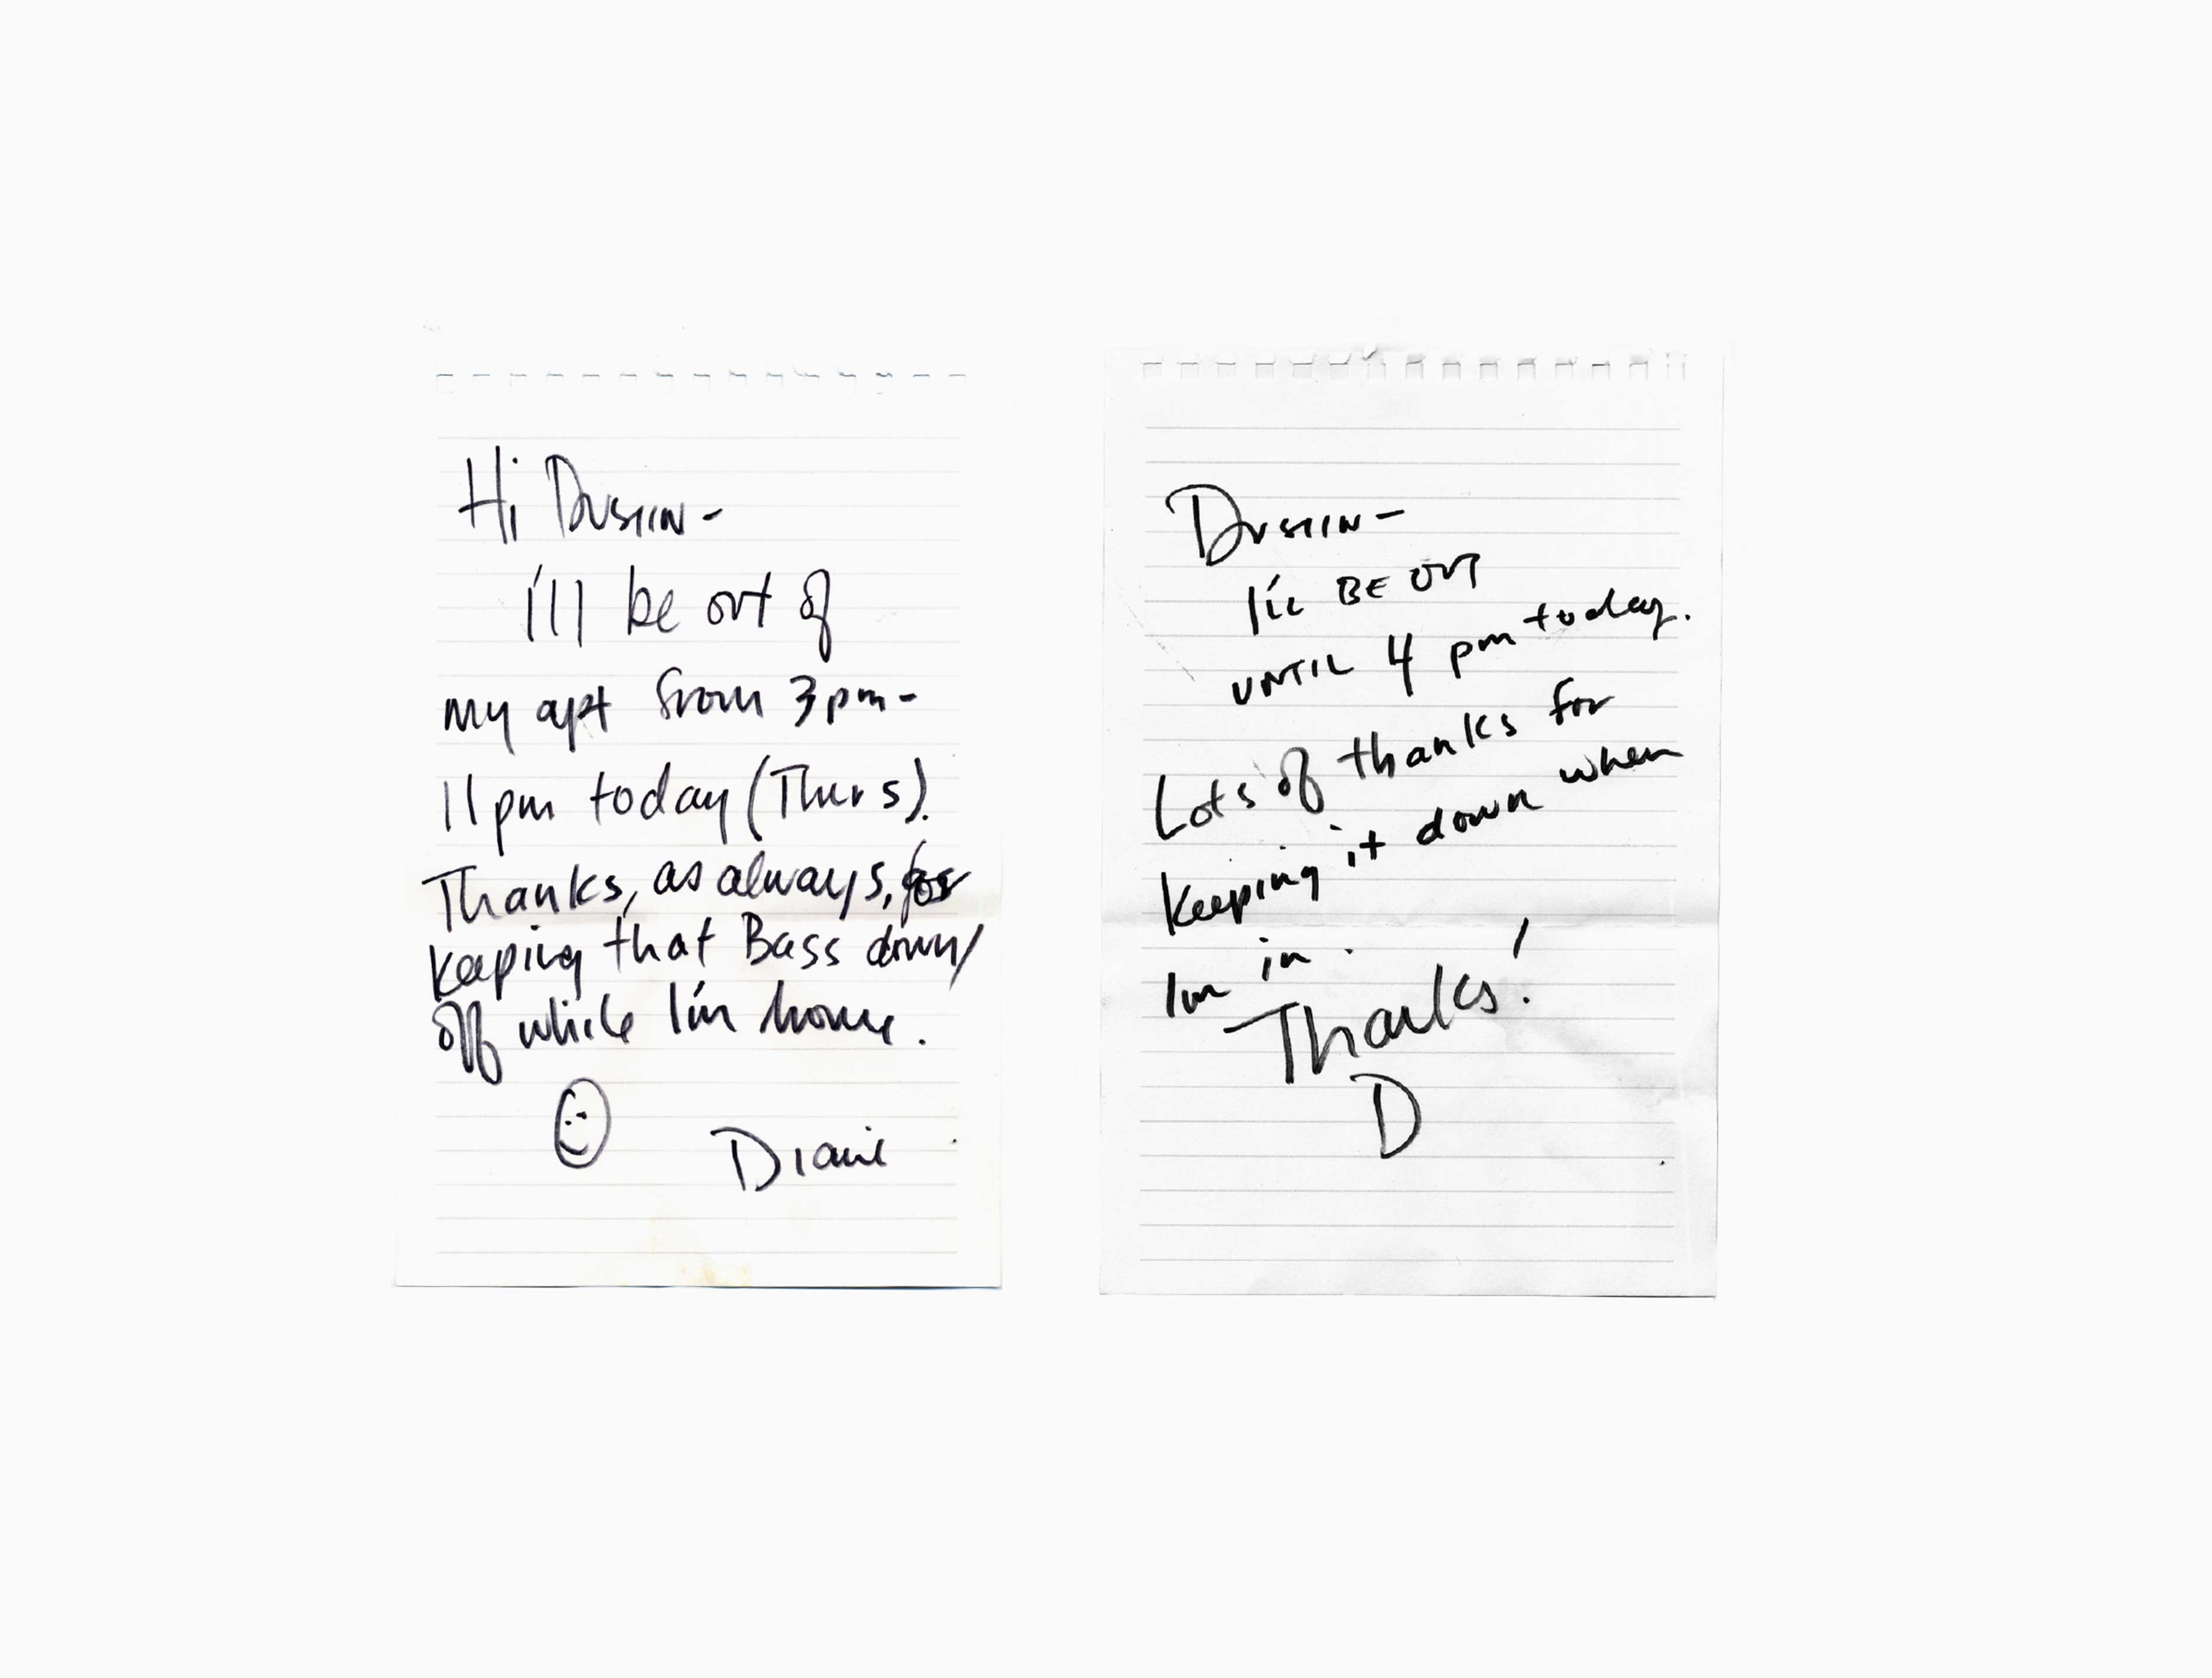 Hi Dustin-
I'll be out of
my apt from 3pm-
11pm today (Thurs).
Thanks, as always, for
keeping that Bass down/
off while I'm home.
Diane
Dustin-
I'LL BE OUT
UNTIL 4 pm today.
Lots of thanks for
keeping it down when
I'm in.
Thanks!
D